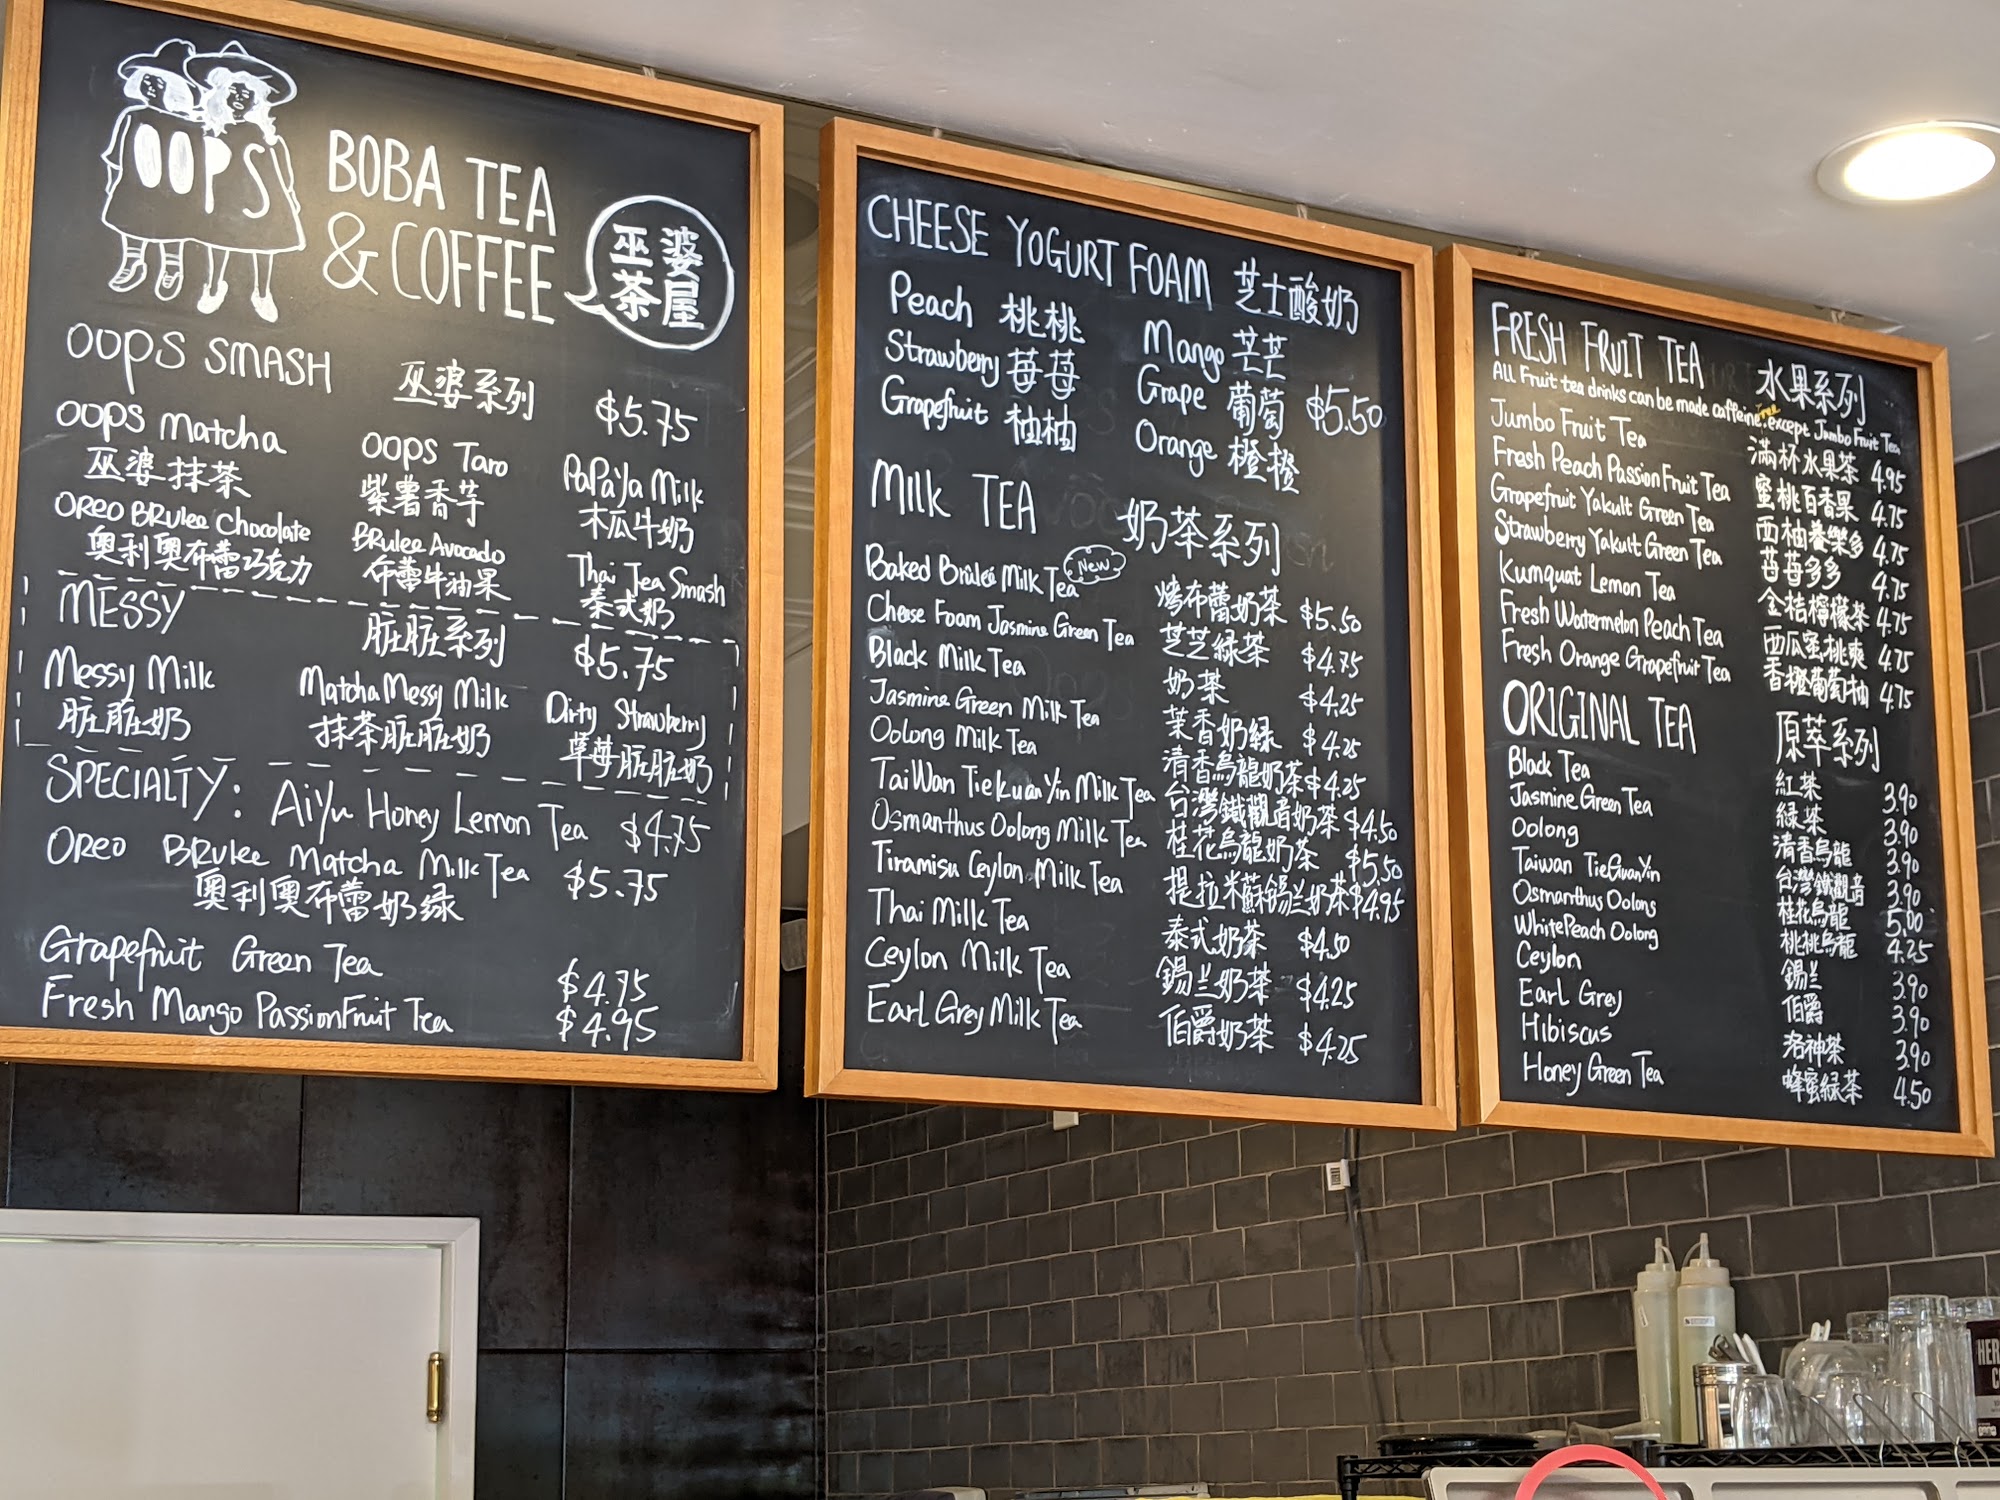 OOPS
BOBA TEA
& COFFEE
巫婆
茶屋
OOPS SMASH 巫婆系列 $5.75
OOPS Matcha OOPS Taro PaPaYa Milk
巫婆抹茶 紫薯香芋 木瓜牛奶
OREO BRulee Chocolate BRulee Avocado Thai Tea Smash
奥利奥布蕾巧克力 布蕾牛油果 泰式奶
MESSY 脏脏系列 $5.75
Messy Milk Matcha Messy Milk Dirty Strawberry
脏脏奶 抹茶脏脏奶 草莓脏脏奶
SPECIALTY: AiYu Honey Lemon Tea $4.75
OREO BRulee Matcha Milk Tea $5.75
奥利奥布蕾奶绿
Grapefruit Green Tea $4.75
Fresh Mango PassionFruit Tea $4.95
CHEESE YOGURT FOAM 芝士酸奶
Peach 桃桃 Mango 芒芒
Strawberry 莓莓 Grape 葡萄 $5.50
Grapefruit 柚柚 Orange 橙橙
Milk TEA 奶茶系列
Baked Brùleé Milk Tea New 烤布蕾奶茶 $5.50
Cheese Foam Jasmine Green Tea 芝芝緑茶 $4.75
Black Milk Tea 奶茶 $4.25
Jasmine Green Milk Tea 茉香奶緑 $4.25
Oolong Milk Tea 清香烏龍奶茶 $4.25
TaiWan TieKuanYin Milk Tea 台灣鐵觀音奶茶 $4.50
Osmanthus Oolong Milk Tea 桂花烏龍奶茶 $5.50
Tiramisu Ceylon Milk Tea 提拉米蘇錫兰奶茶 $4.95
Thai Milk Tea 泰式奶茶 $4.50
Ceylon Milk Tea 錫兰奶茶 $4.25
Earl Grey Milk Tea 伯爵奶茶 $4.25
FRESH FRUIT TEA 水果系列
All Fruit tea drinks can be made caffeine free except Jumbo Fruit Tea
Jumbo Fruit Tea 滿杯水果茶 4.95
Fresh Peach Passion Fruit Tea 蜜桃百香果 4.75
Grapefruit Yakult Green Tea 西柚養樂多 4.75
Strawberry Yakult Green Tea 莓莓多多 4.75
Kumquat Lemon Tea 金桔檸檬茶 4.75
Fresh Watermelon Peach Tea 西瓜蜜桃爽 4.75
Fresh Orange Grapefruit Tea 香橙葡萄柚 4.75
ORIGINAL TEA 原萃系列
Black Tea 紅茶 3.90
Jasmine Green Tea 緑茶 3.90
Oolong 清香烏龍 3.90
Taiwan TieGuanYin 台灣鐵觀音 3.90
Osmanthus Oolong 桂花烏龍 5.00
WhitePeach Oolong 桃桃烏龍 4.25
Ceylon 錫兰 3.90
Earl Grey 伯爵 3.90
Hibiscus 洛神茶 3.90
Honey Green Tea 蜂蜜緑茶 4.50